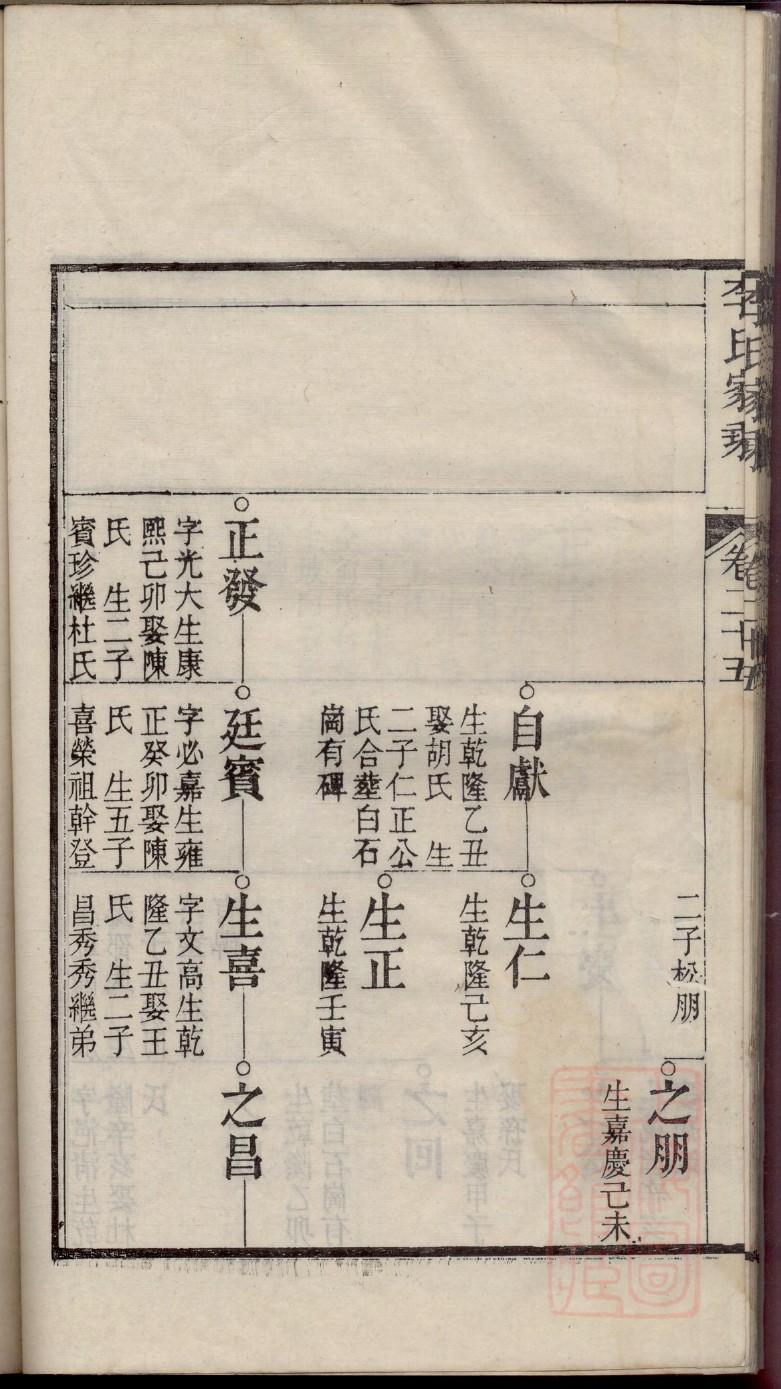 李氏家乘
卷二十五
二子松朋
之朋
生嘉慶己未
自獻
生乾隆乙丑
娶胡氏 生
二子仁正公
氏合塟白石
崗有碑
生仁
生乾隆己亥
生正
生乾隆壬寅
正發
字光大生康
熙己卯娶陳
氏 生二子
賓珍繼杜氏
廷賓
字必嘉生雍
正癸卯娶陳
氏 生五子
喜榮祖幹登
生喜
字文高生乾
隆乙丑娶王
氏 生二子
昌秀秀繼弟
之昌